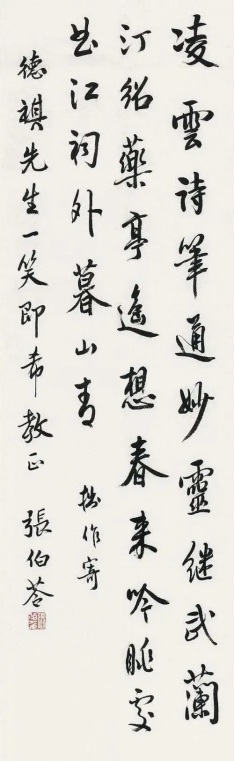 凌雲詩筆通妙靈繼武蘭
汀紹藥亭遙想春来吟眺處
曲江祠外暮山青 拙作寄
德祺先生一笑即希教正 張伯苓